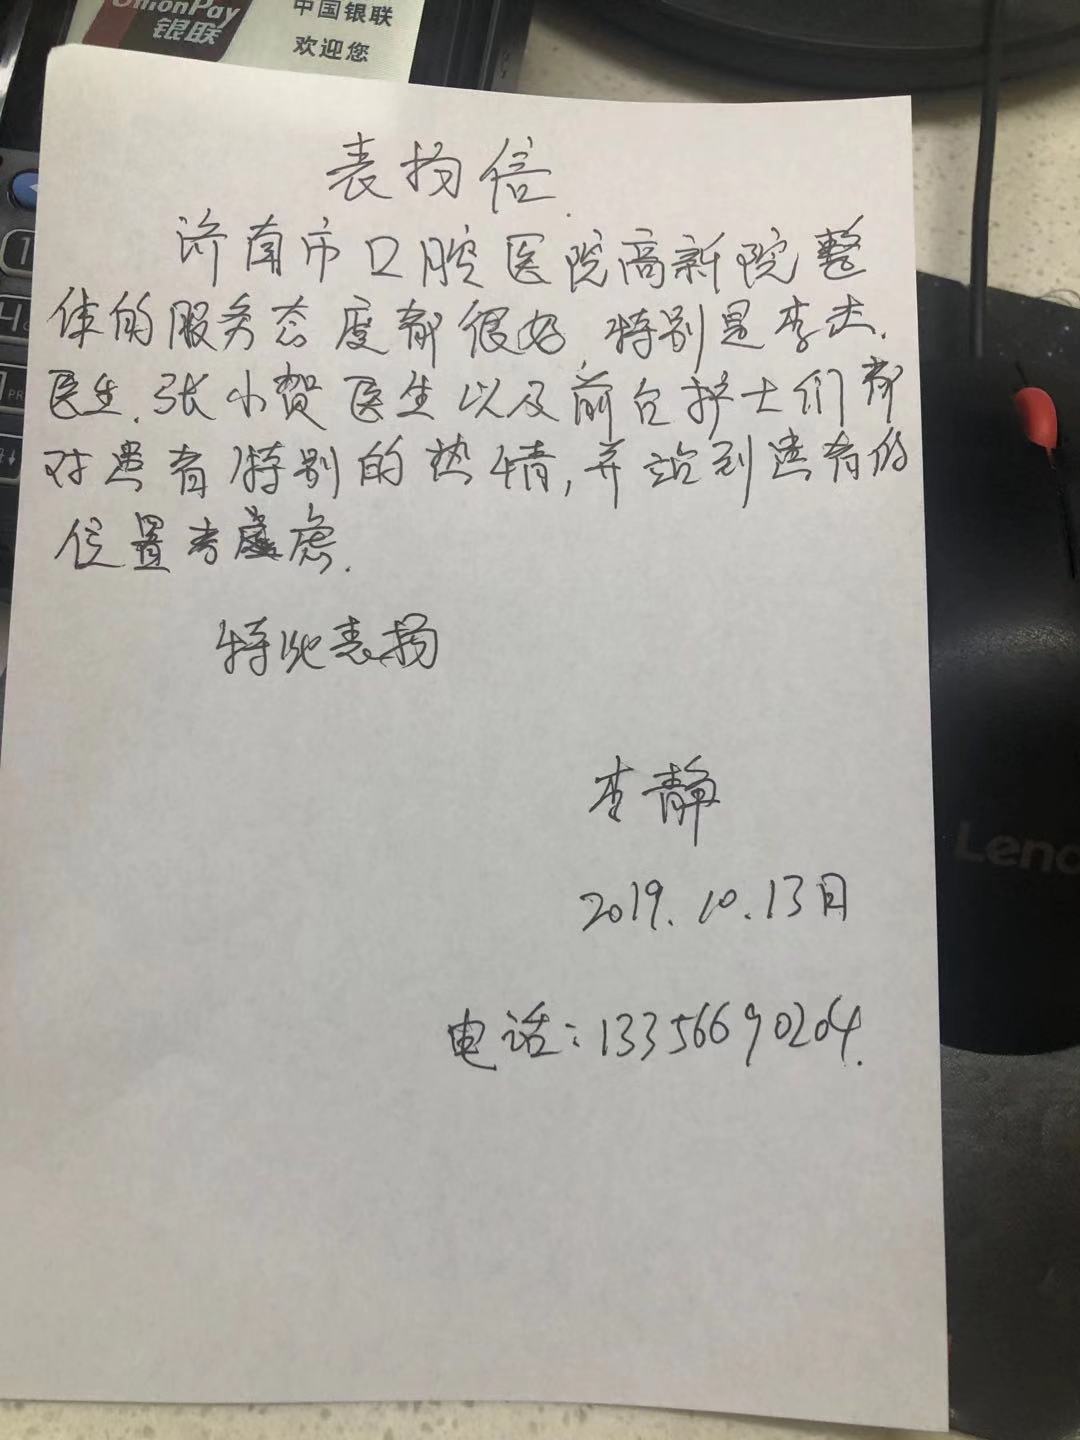 UnionPay
银联
中国银联
欢迎您
表扬信.
济南市口腔医院高新院整
体的服务态度都很好.特别是李杰.
医生.张小贺医生以及前台护士们都
对患者特别的热情,并站到患者的
位置考虑.
特此表扬
李静
2019.10.13日
电话:13356690204.
Leno